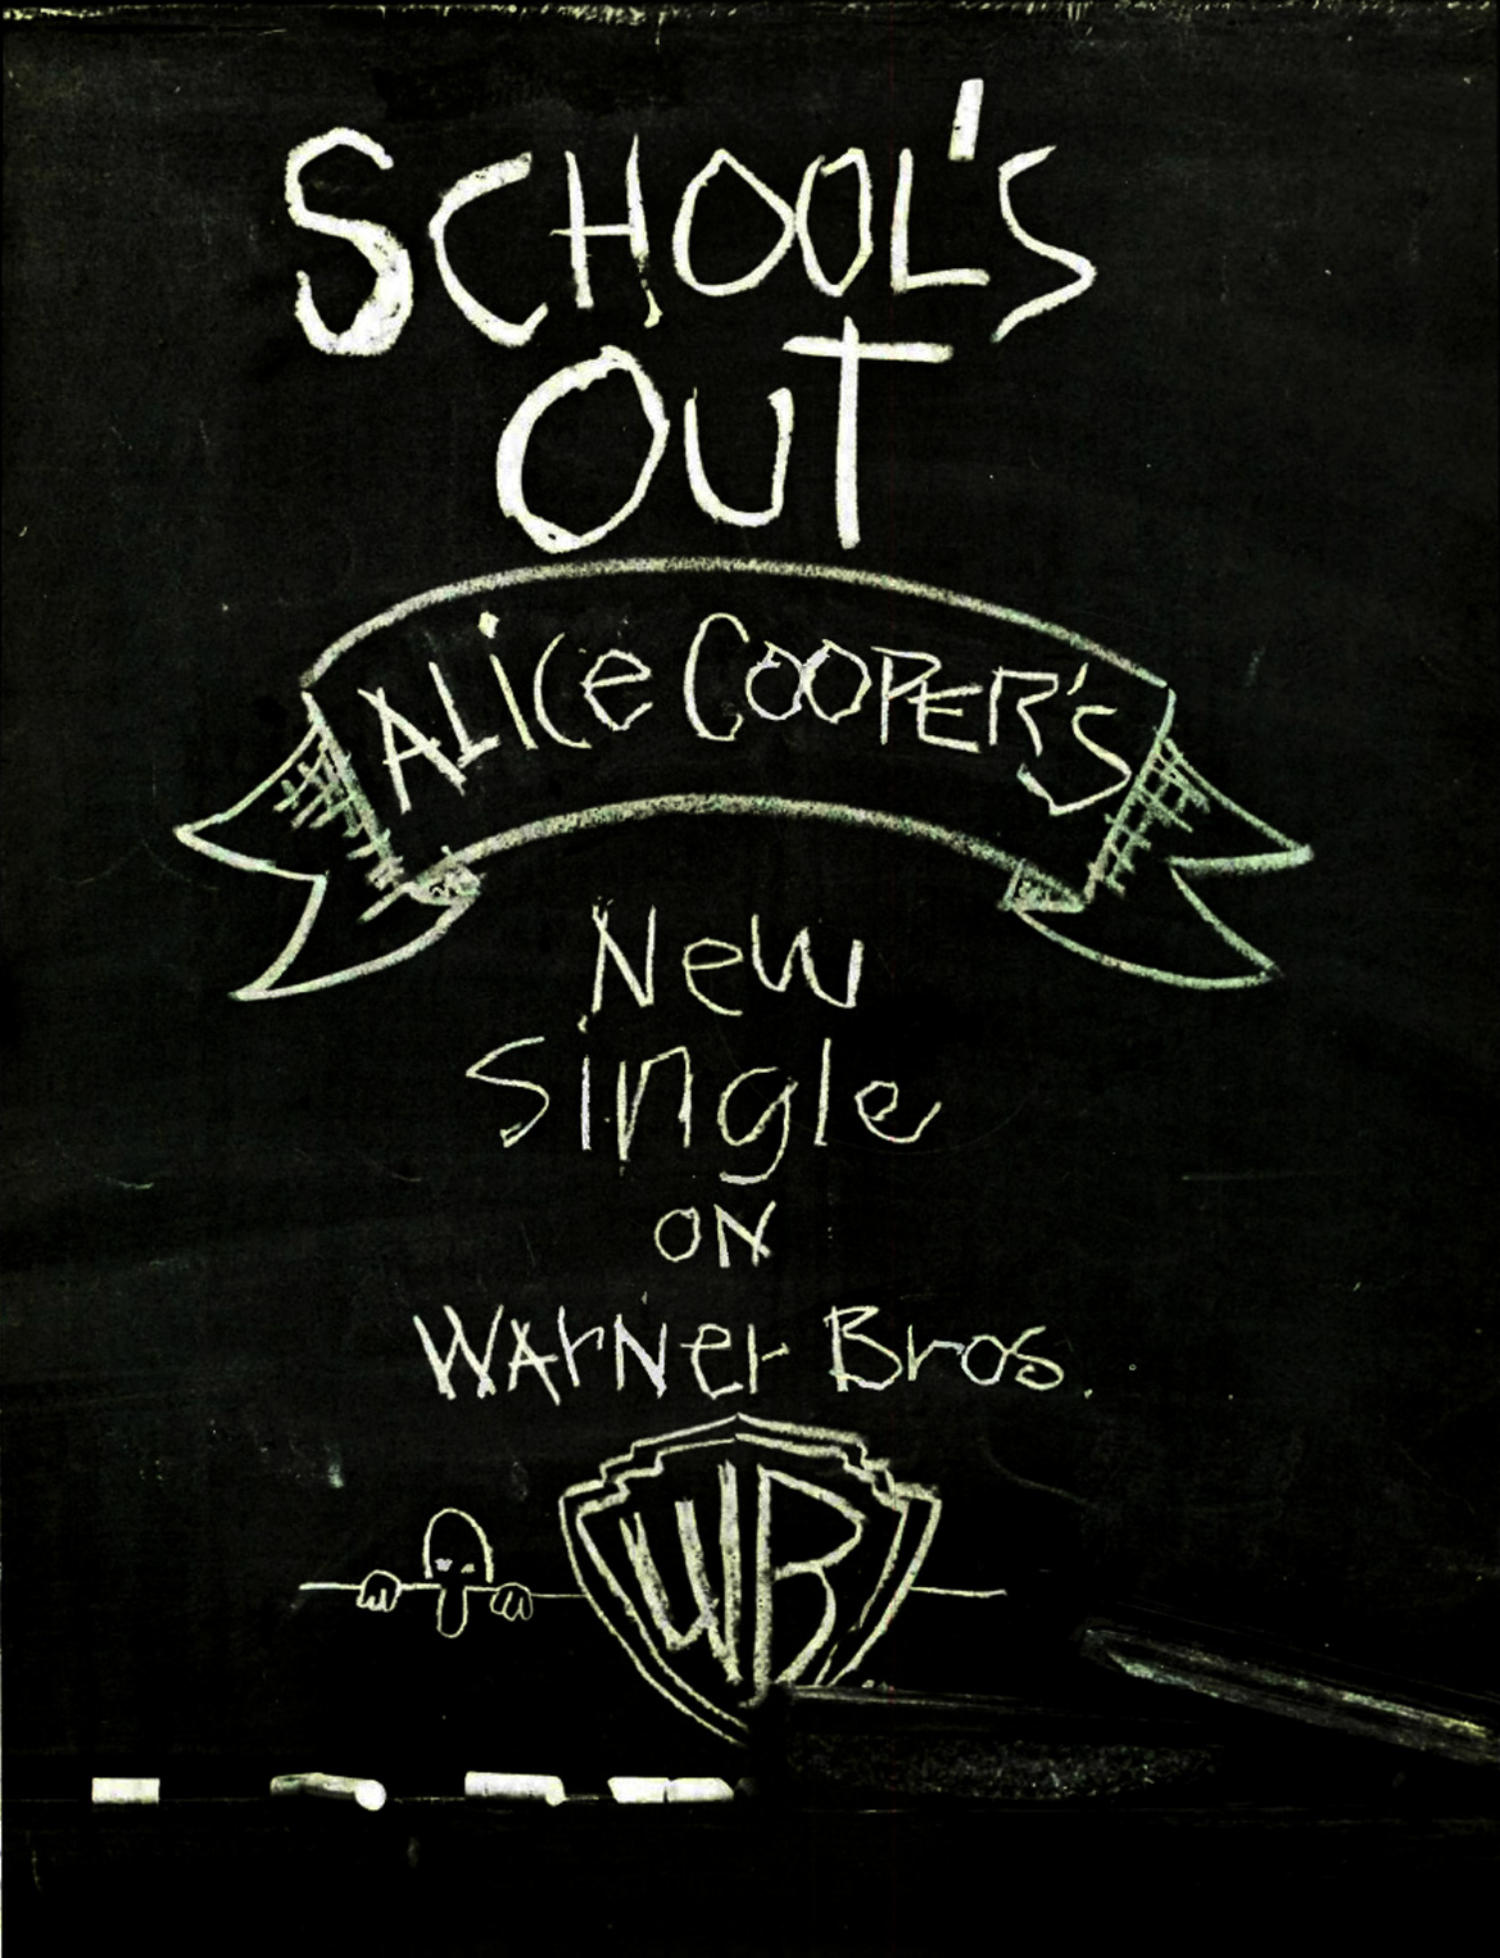 SCHOOL'S
OUT
ALiCe COOPER'S
New
Single
ON
WArNer Bros.
WB